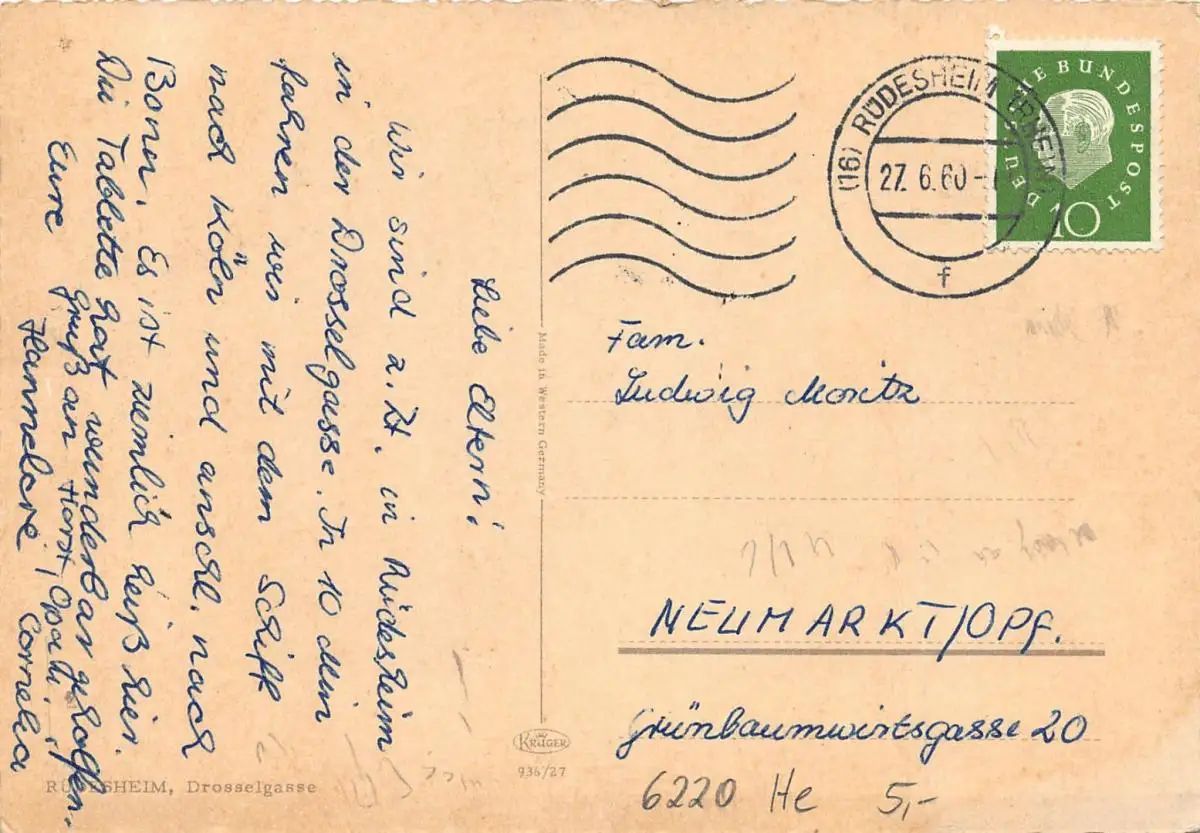 Liebe Eltern!
Wir sind z. Zt. in Rüdesheim
in der Drosselgasse. In 10 min
fahren wir mit dem Schiff
nach Köln und anschl. nach
Bonn. Es ist ziemlich heiß hier.
Die Tablette hat wunderbar geholfen.
Gruß an Horst, Opa u.
Eure Hannelore, Cornelia
RÜDESHEIM, Drosselgasse
Made in Western Germany
KRÜGER
936/27
(16) RÜDESHEIM (RHEIN)
27. 6. 60
f
DEUTSCHE BUNDESPOST
10
Fam.
Ludwig Moritz
NEUMARKT/OPf.
Grünbaumwirtsgasse 20
6220 He 5,-